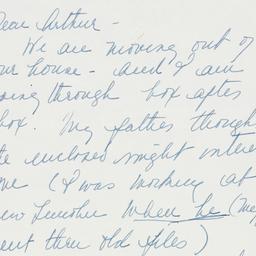 Dear Arthur -
We are moving out of
our house - and I am
going through box after
box. My father thought
the enclosed might interest
me (I was working at
New Lincoln when he (
went thru old files)